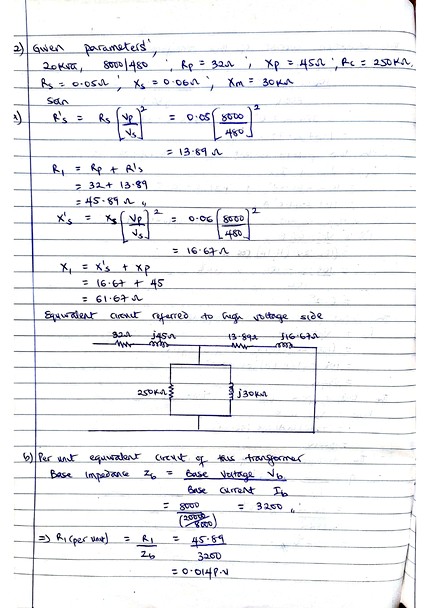 2) Given parameters',
20kva, 8000/480 ; Rp = 32Ω ; Xp = 45Ω ; Rc = 250KΩ,
Rs = 0.05Ω ; Xs = 0.06Ω ; Xm = 30KΩ
Soln
a) R's = Rs [Vp/Vs]² = 0.05 [8000/480]²
= 13.89 Ω
R₁ = Rp + R's
= 32 + 13.89
= 45.89 Ω
X's = Xs [Vp/Vs]² = 0.06 [8000/480]²
= 16.67Ω
X₁ = X's + Xp
= 16.67 + 45
= 61.67 Ω
Equivalent circuit referred to high voltage side
32Ω j45Ω 13.89Ω j16.67Ω
250KΩ j30KΩ
b) Per unit equivalent circuit of this transformer
Base impedance Zb = Base Voltage Vb
Base current Ib
= 8000/(20000/8000) = 3200
=> R₁ (per unit) = R₁/Zb = 45.89/3200
= 0.014P.U